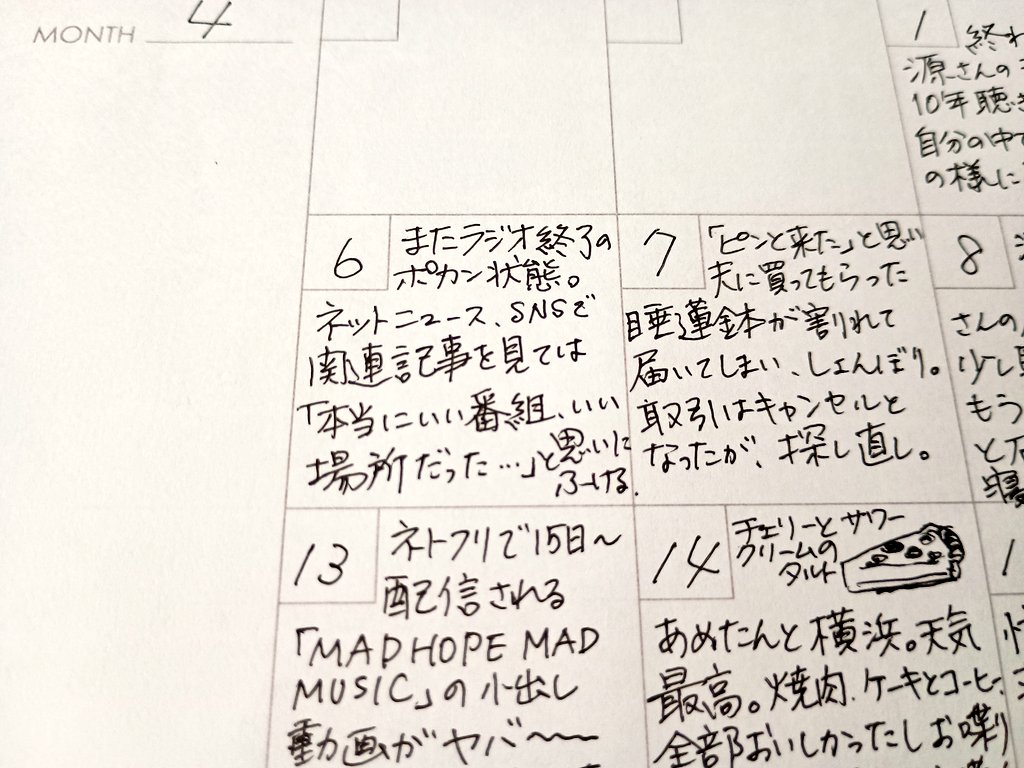 MONTH 4
1
終わ
源さんの
10年聴き
自分の中で
の様に
6
またラジオ終了の
ポカン状態。
ネットニュース、SNSで
関連記事を見ては
「本当にいい番組、いい
場所だった…」と思いに
ふける。
7
「ピンと来た」と思い
夫に買ってもらった
睡蓮鉢が割れて
届いてしまい、しょんぼり。
取引はキャンセルと
なったが、探し直し。
8
さんの
少し
もう
と
13
ネトフリで15日〜
配信される
「MAD HOPE MAD
MUSIC」の小出し
動画がヤバ〜〜
14
チェリーとサワー
クリームの
タルト
あめたんと横浜。天気
最高。焼肉、ケーキとコーヒー、
全部おいしかったしお喋り
1